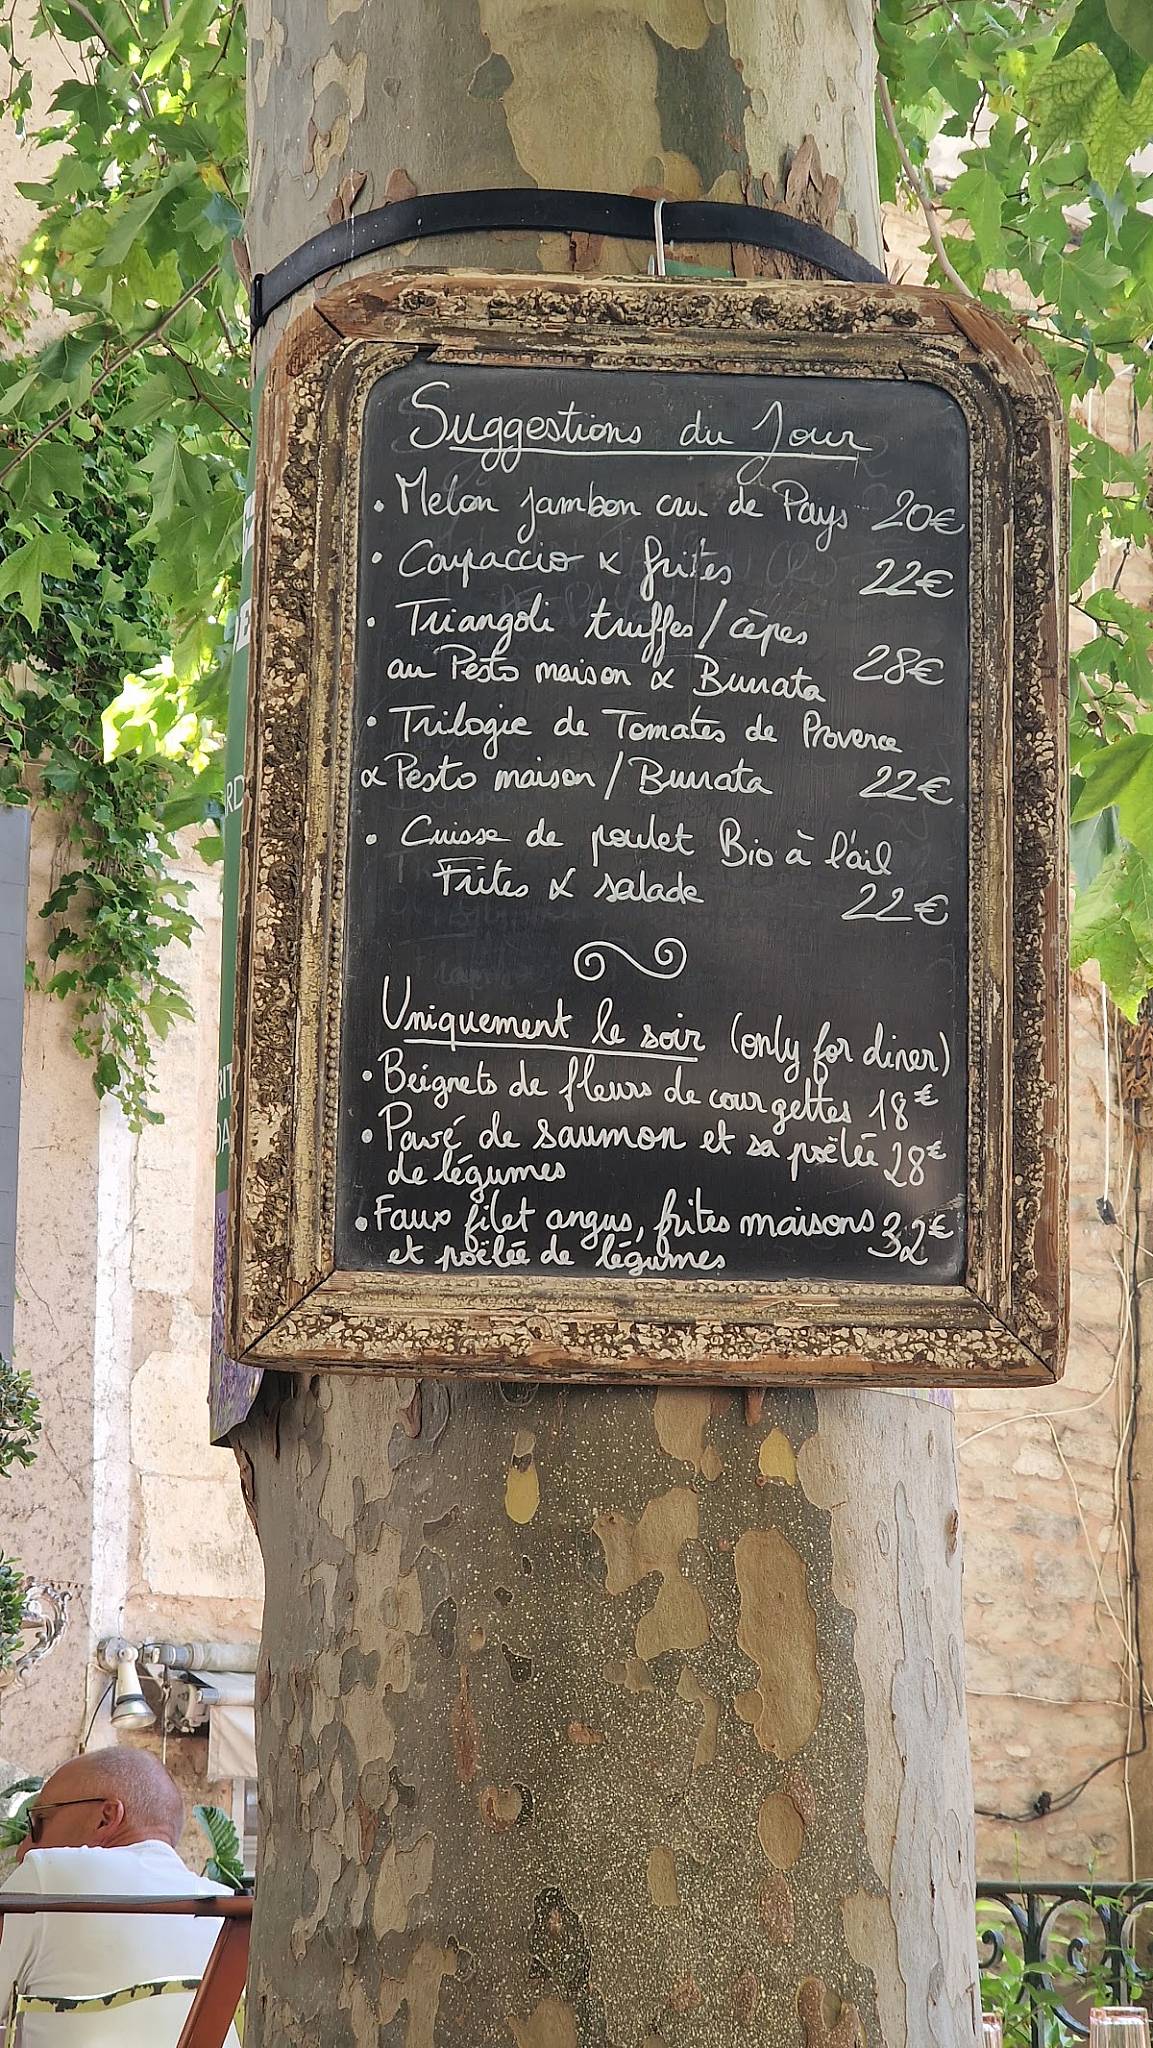 Suggestions du Jour
• Melon jambon cru de Pays 20€
• Carpaccio & frites 22€
• Triangoli truffes/cèpes
au Pesto maison & Burrata 28€
• Trilogie de Tomates de Provence
& Pesto maison/Burrata 22€
• Cuisse de poulet Bio à l'ail
Frites & salade 22€
Uniquement le soir (only for diner)
• Beignets de fleurs de courgettes 18€
• Pavé de saumon et sa poëlée 28€
de légumes
• Faux filet angus, frites maisons 32€
et poëlée de légumes